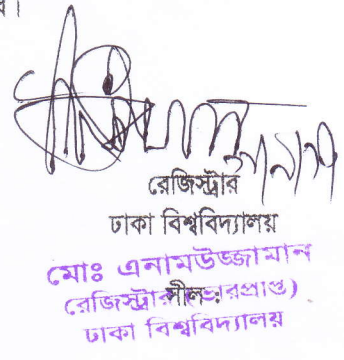 র।
রেজিস্ট্রার
ঢাকা বিশ্ববিদ্যালয়
মোঃ এনামউজ্জামান
রেজিস্ট্রার (ভারপ্রাপ্ত)
সীল:
ঢাকা বিশ্ববিদ্যালয়